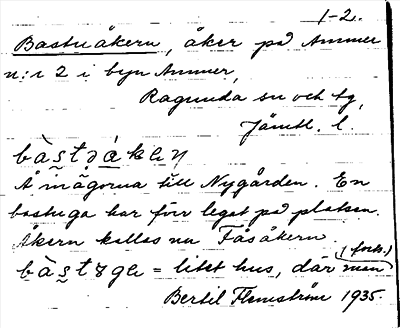 1-2.
Bastuåkern, åker på Ammer
n:r 2 i byn Ammer,
Ragunda sn och tg,
Jämtl. l.
Å mägorna till Nygården. En
bastuga har förr legat på platsen.
Åkern kallas nu Fåsåkern
= litet hus, där man
(forts.)
Bertil Flemström 1935.